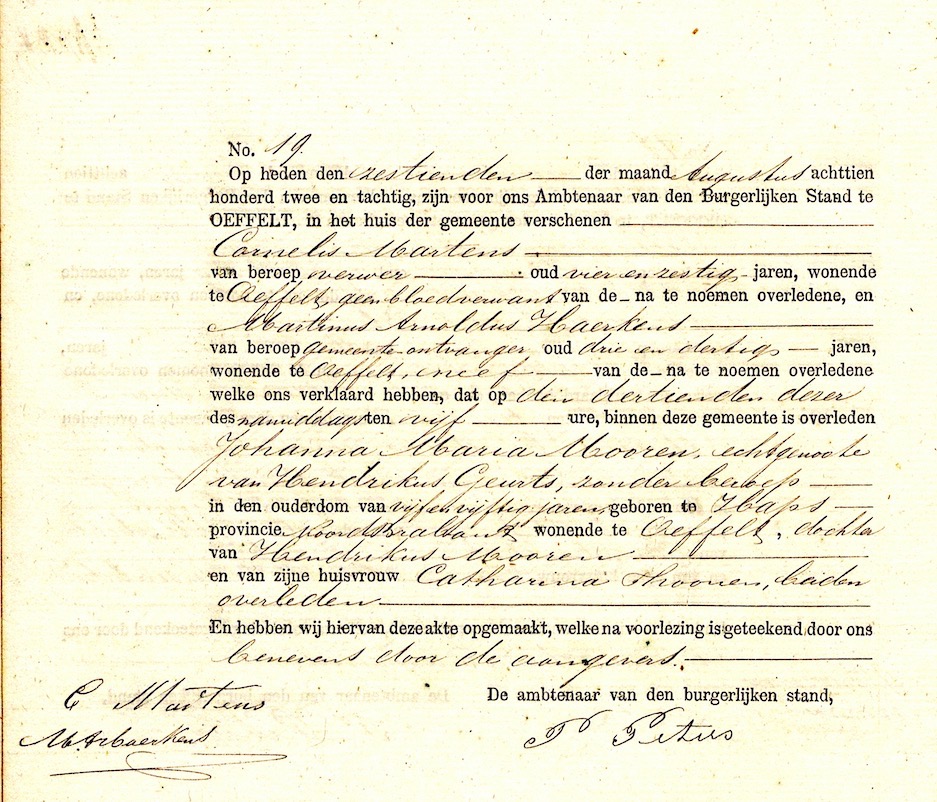 No. 19.
Op heden den zestienden der maand Augustus achttien
honderd twee en tachtig, zijn voor ons Ambtenaar van den Burgerlijken Stand te
OEFFELT, in het huis der gemeente verschenen
Cornelis Martens
van beroep verwer oud vier en zestig jaren, wonende
te Oeffelt, geen bloedverwant van de na te noemen overledene, en
Martinus Arnoldus Haerkens
van beroep gemeente-ontvanger, oud drie en dertig jaren,
wonende te Oeffelt, neef van de na te noemen overledene
welke ons verklaard hebben, dat op den dertienden dezer
des namiddags ten vijf ure, binnen deze gemeente is overleden
Johanna Maria Mooren, echtgenoote
van Hendrikus Geurts, zonder beroep
in den ouderdom van vijf en vijftig jaren geboren te Haps
provincie Noordbrabant wonende te Oeffelt, dochter
van Hendrikus Mooren
en van zijne huisvrouw Catharina Thoonen, beiden
overleden
En hebben wij hiervan deze akte opgemaakt, welke na voorlezing is geteekend door ons
benevens door de aangevers.
De ambtenaar van den burgerlijken stand,
C Martens
P Peters
M. A. Haerkens